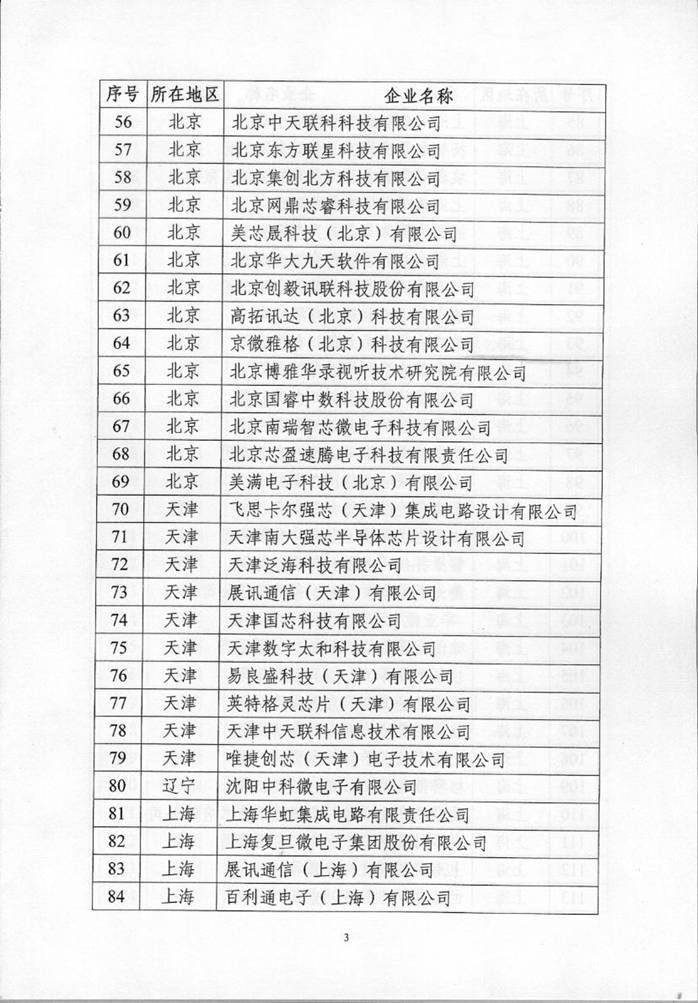 序号 所在地区 企业名称
56 北京 北京中天联科科技有限公司
57 北京 北京东方联星科技有限公司
58 北京 北京集创北方科技有限公司
59 北京 北京网鼎芯睿科技有限公司
60 北京 美芯晟科技（北京）有限公司
61 北京 北京华大九天软件有限公司
62 北京 北京创毅讯联科技股份有限公司
63 北京 高拓讯达（北京）科技有限公司
64 北京 京微雅格（北京）科技有限公司
65 北京 北京博雅华录视听技术研究院有限公司
66 北京 北京国睿中数科技股份有限公司
67 北京 北京南瑞智芯微电子科技有限公司
68 北京 北京芯盈速腾电子科技有限责任公司
69 北京 美满电子科技（北京）有限公司
70 天津 飞思卡尔强芯（天津）集成电路设计有限公司
71 天津 天津南大强芯半导体芯片设计有限公司
72 天津 天津泛海科技有限公司
73 天津 展讯通信（天津）有限公司
74 天津 天津国芯科技有限公司
75 天津 天津数字太和科技有限公司
76 天津 易良盛科技（天津）有限公司
77 天津 英特格灵芯片（天津）有限公司
78 天津 天津中天联科信息技术有限公司
79 天津 唯捷创芯（天津）电子技术有限公司
80 辽宁 沈阳中科微电子有限公司
81 上海 上海华虹集成电路有限责任公司
82 上海 上海复旦微电子集团股份有限公司
83 上海 展讯通信（上海）有限公司
84 上海 百利通电子（上海）有限公司
3